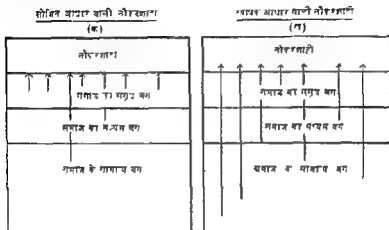 सीमित आधार वाली नौकरशाही
(क)
नौकरशाही
समाज का समृद्ध वर्ग
समाज का मध्यम वर्ग
समाज के सामान्य वर्ग
व्यापक आधार वाली नौकरशाही
(ख)
नौकरशाही
समाज का समृद्ध वर्ग
समाज का मध्यम वर्ग
समाज के सामान्य वर्ग